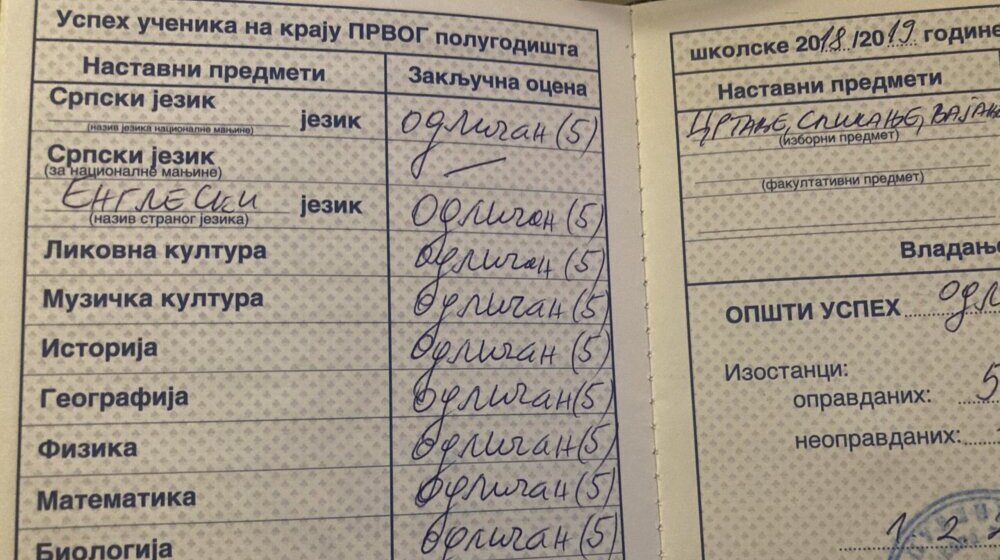 Успех ученика на крају ПРВОГ полугодишта
Наставни предмети Закључна оцена
Српски језик
(назив језика националне мањине) језик одличан (5)
Српски језик
(за националне мањине) —
ЕНГЛЕСКИ језик Одличан (5)
(назив страног језика)
Ликовна култура одличан (5)
Музичка култура Одличан (5)
Историја Одличан (5)
Географија Одличан (5)
Физика Одличан (5)
Математика Одличан (5)
Биологија Одличан (5)
школске 2018/2019 године
Наставни предмети
ЦРТАЊЕ, СЛИКАЊЕ,
(изборни предмет)
(факултативни предмет)
ОПШТИ УСПЕХ
Изостанци:
оправданих: 5
неоправданих:
1 2.